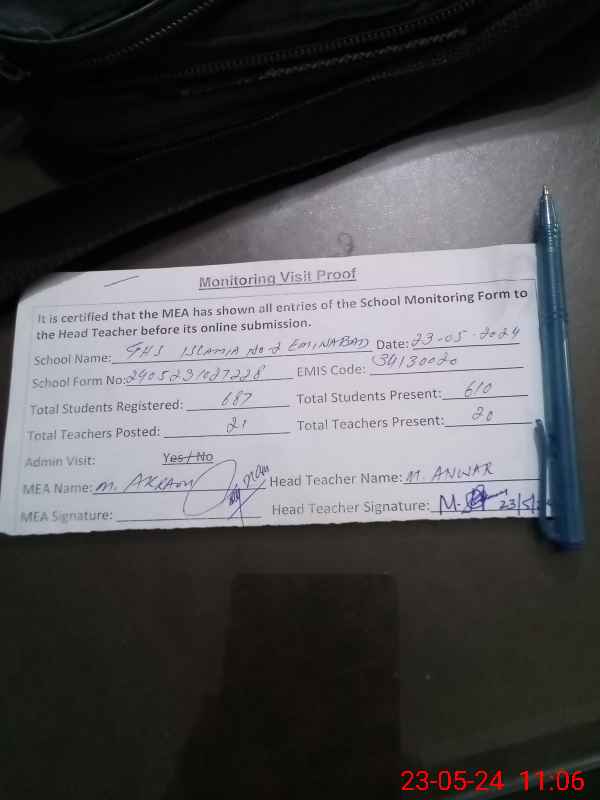 Monitoring Visit Proof
It is certified that the MEA has shown all entries of the School Monitoring Form to
the Head Teacher before its online submission.
School Name: GHS ISLAMIA No-2 EMINABAD Date: 23-05-2024
School Form No: 2405231027228 EMIS Code: 34130020
Total Students Registered: 687 Total Students Present: 610
Total Teachers Posted: 21 Total Teachers Present: 20
Admin Visit: Yes / No
MEA Name: M. AKRAM Head Teacher Name: M. ANWAR
MEA Signature: Head Teacher Signature: M. 23/5/24
23-05-24 11:06